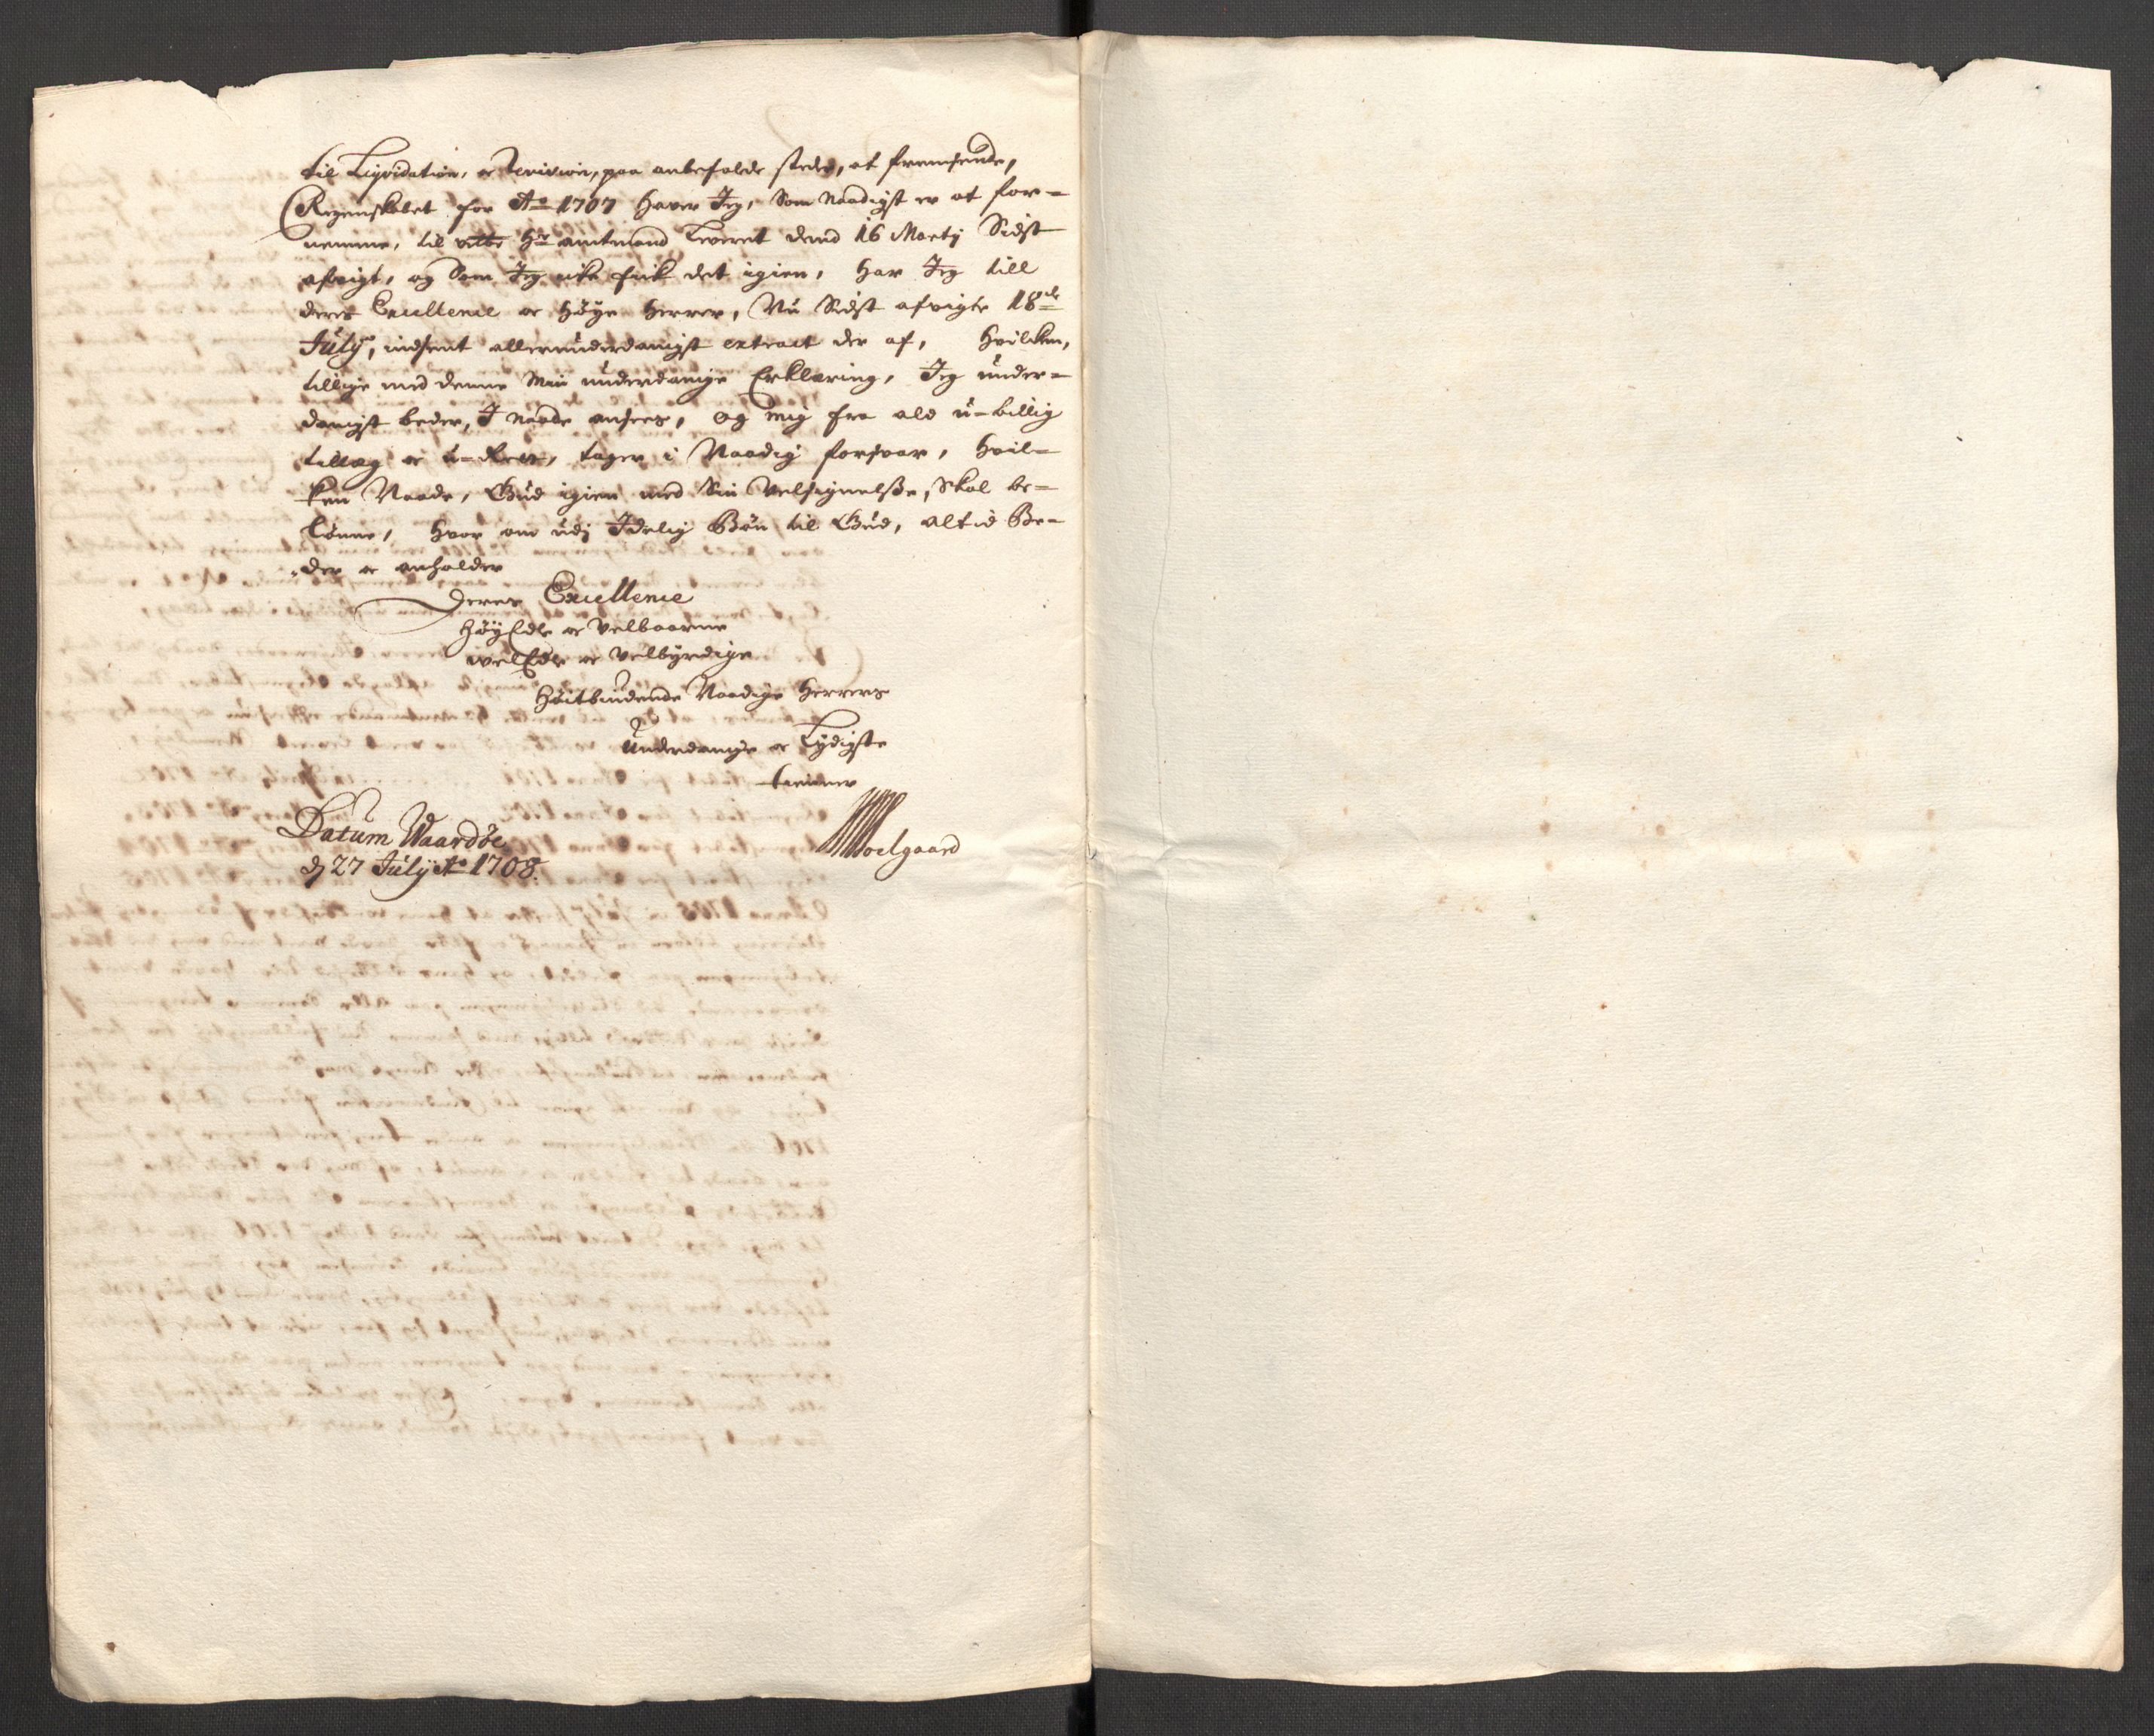 til Liqvidation, og Revision, paa anbefalede steder, at fremsende,
Regenskabet for Ao 1707 haver Jeg, Som Naadigst er at for-
nemme, til velbr Hr amtmand Leveret dend 16 Martj Sidst
afvigt, og Som Jeg icke fick det igien, har Jeg till
deres Excellence og Høye Herrer, Nu Sidst afvigte 18de
July, indsent allerunderdanigst extract der af, hvilcken,
tillige med denne Min underdanige Erklæring, Jeg under-
danigst beder, I Naade ansees, og mig fra ald u-billig
tillæg og u-, tager i Naadig forsvar, hvil-
ken Naade, Gud igien med Sin Velsignelsse, Skal be-
lønne, hvor om udj Idelig Bøn til Gud, altid Be-
der og anholder
Deres Excellence
HøyEdle og Velbaarne
welEdle og Velbyrdige
Høitbiudende Naadige Herrers
Underdanige og Lydigste
tienner
Datum Waardøe
d 27 July Ao 1708.
Soelgaard